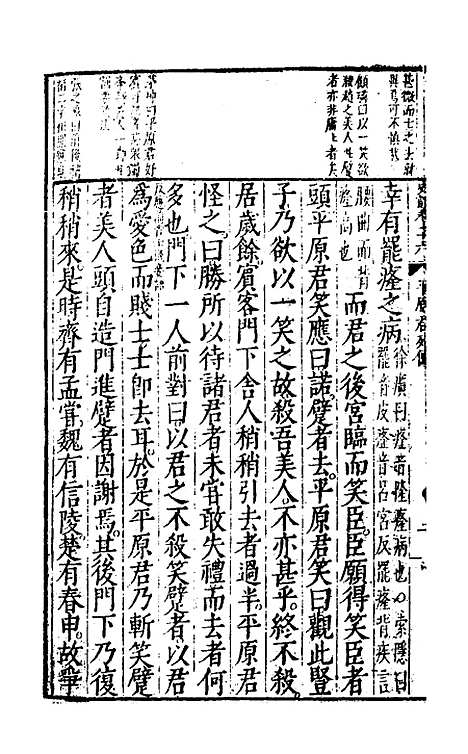 甚微而士之去就
與焉可不慎哉
顧璘曰以一笑欲
殺趙之美人生躄
者亦非庸上者矣
茅坤曰平原君好
幸有罷癃之病徐廣曰癃音隆癃病也 索隱曰
罷音皮癃音呂宮反罷癃背疾言
腰曲而背
癃高也而君之後宮臨而笑臣臣願得笑臣者
頭平原君笑應曰諾躄者去平原君笑曰觀此豎
子乃欲以一笑之故殺吾美人不亦甚乎終不殺
居歲餘賓客門下舍人稍稍引去者過半平原君
怪之曰勝所以待諸君者未嘗敢失禮而去者何
多也門下一人前對曰以君之不殺笑躄者以君
為愛色而賤士士即去耳於是平原君乃斬笑躄
者美人頭自造門進躄者因謝焉其後門下乃復
稍稍來是時齊有孟嘗魏有信陵楚有春申故爭